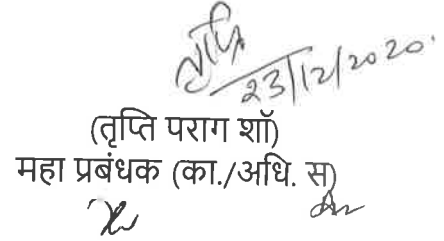 तृप्ति
23/12/2020.
(तृप्ति पराग शॉ)
महा प्रबंधक (का./अधि. स)